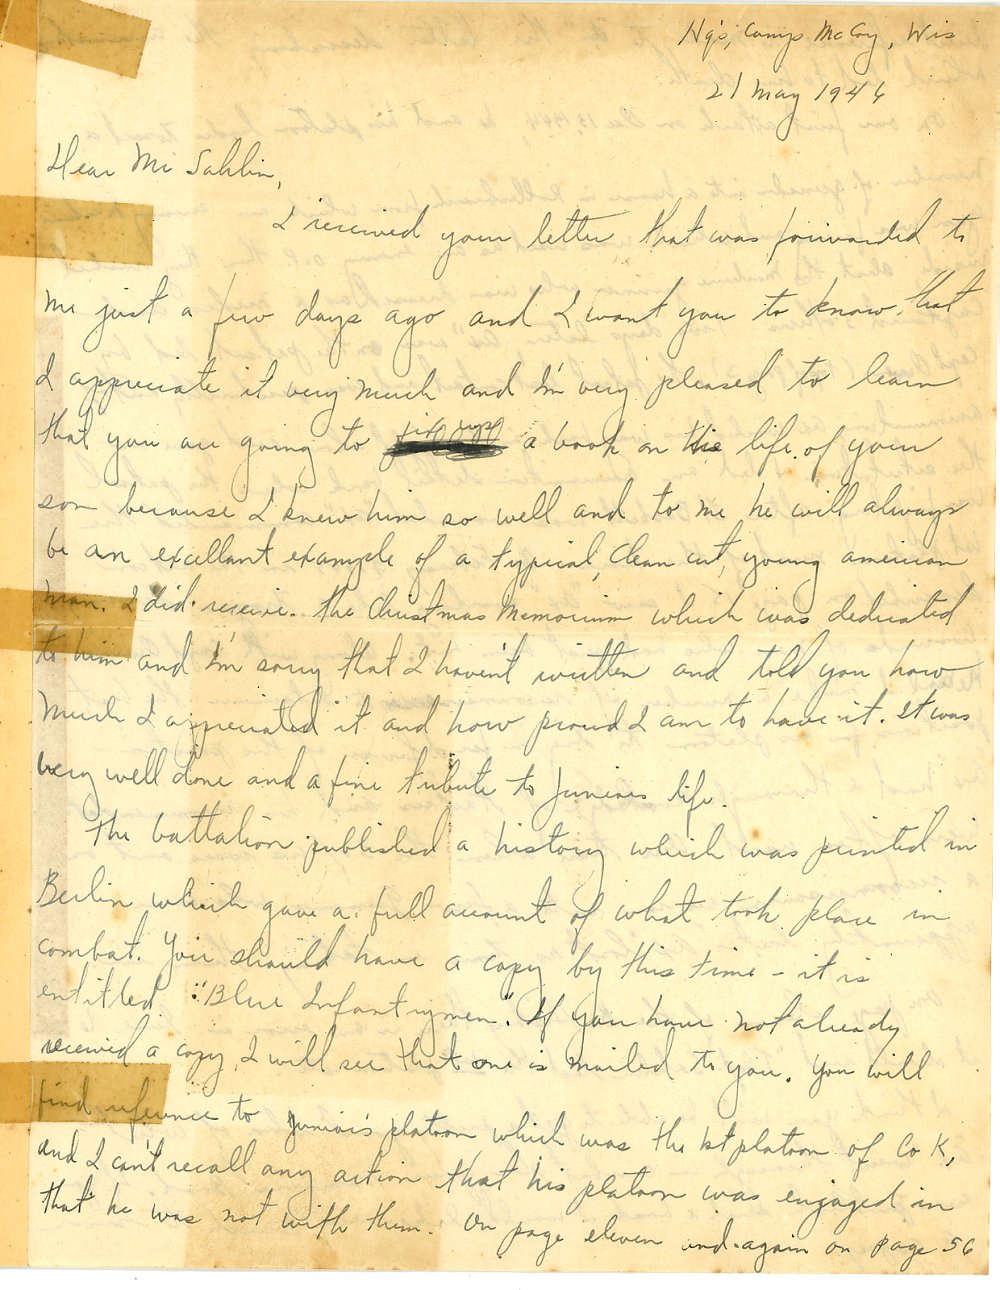 Hqs, Camp McCoy, Wis
21 May 1946
Dear Mr Sahlin,
I received your letter that was forwarded to
me just a few days ago and I want you to know that
I appreciate it very much and I'm very pleased to learn
that you are going to a book on the life of your
son because I knew him so well and to me he will always
be an excellant example of a typical, clean cut, young american
man. I did receive the Christmas Memorium which was dedicated
to him and I'm sorry that I haven't written and told you how
much I appreciated it and how proud I am to have it. It was
very well done and a fine tribute to Juniors life.
The battalion published a history which was printed in
Berlin which gave a full account of what took place in
combat. You should have a copy by this time - it is
entitled "Blue Infantrymen". If you have not already
received a copy, I will see that one is mailed to you. You will
find reference to Junior's platoon which was the 1st platoon of Co K,
and I can't recall any action that his platoon was engaged in
that he was not with them. On page eleven and again on page 56